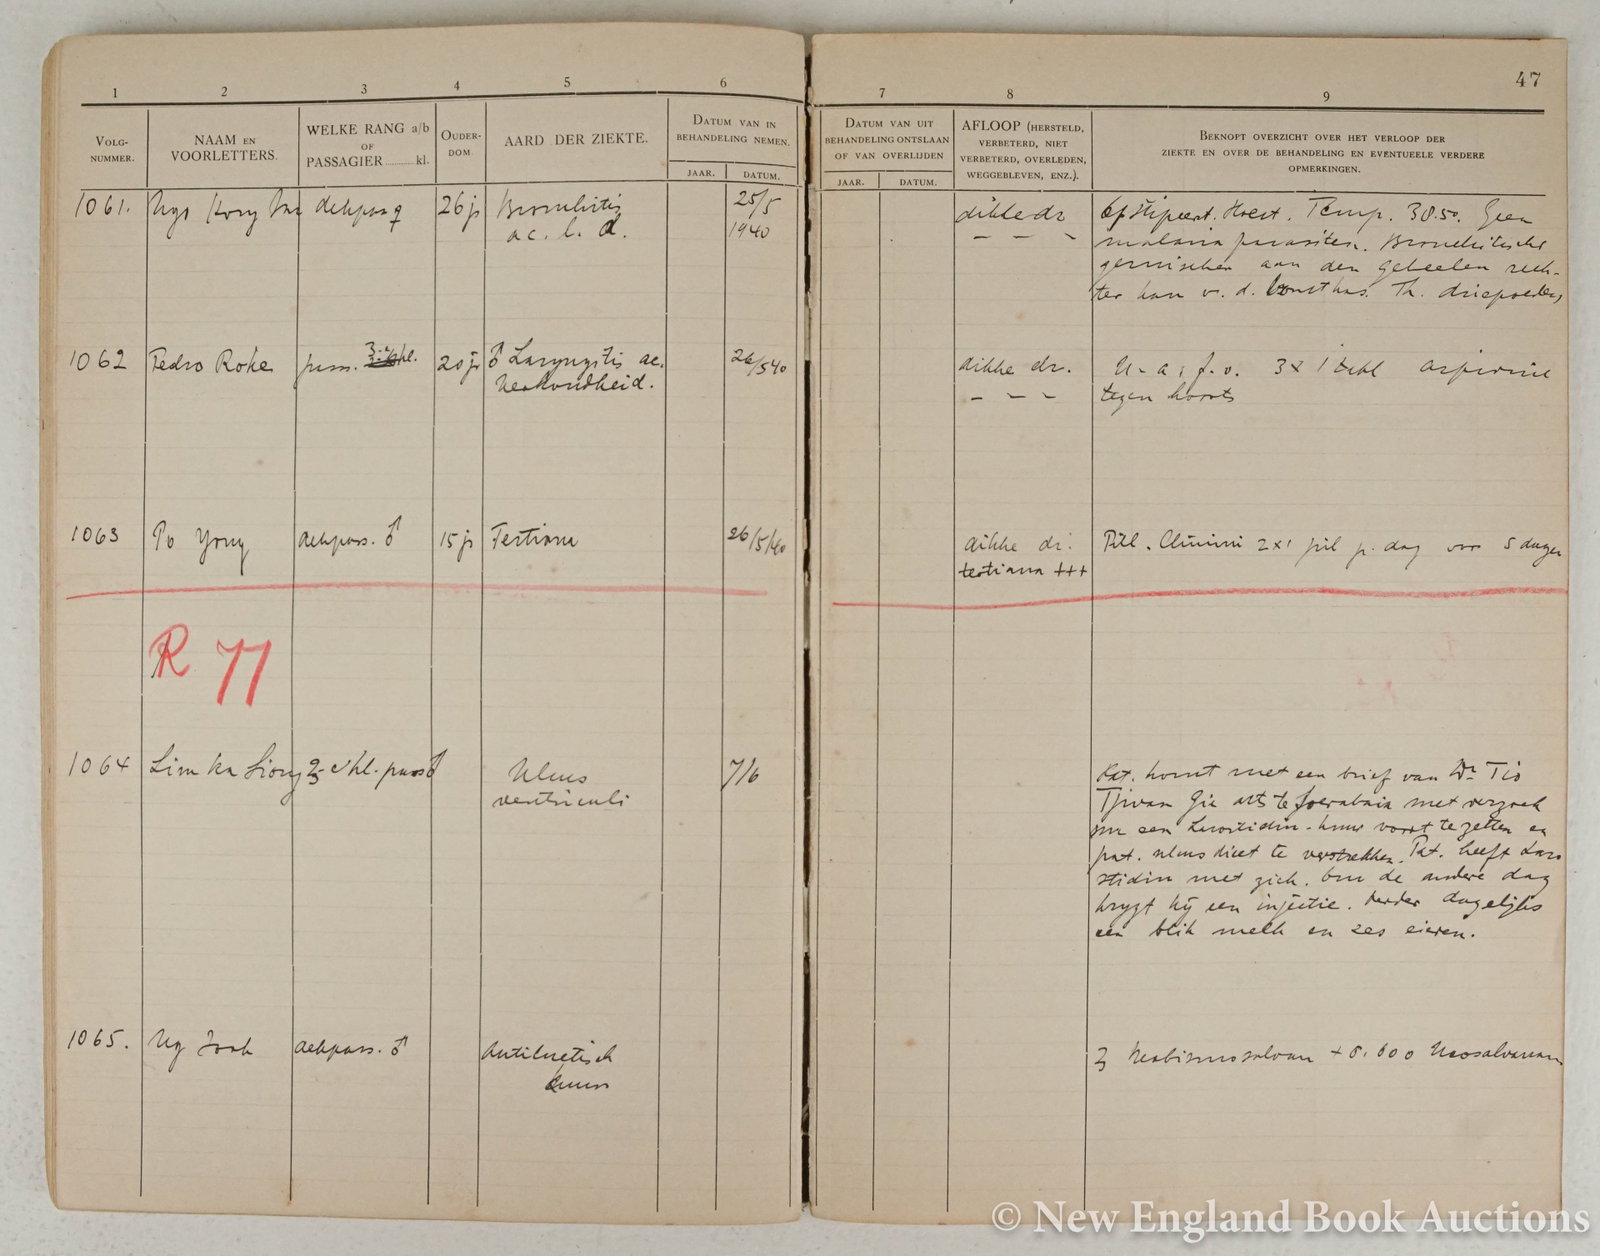 47
1 2 3 4 5 6 7 8 9
VOLG-
NUMMER.
NAAM EN
VOORLETTERS.
WELKE RANG a/b
OF
PASSAGIER kl.
OUDER-
DOM.
AARD DER ZIEKTE.
DATUM VAN IN
BEHANDELING NEMEN.
JAAR. DATUM.
DATUM VAN UIT
BEHANDELING ONTSLAAN
OF VAN OVERLIJDEN
JAAR. DATUM.
AFLOOP (HERSTELD,
VERBETERD, NIET
VERBETERD, OVERLEDEN,
WEGGEBLEVEN, ENZ.).
BEKNOPT OVERZICHT OVER HET VERLOOP DER
ZIEKTE EN OVER DE BEHANDELING EN EVENTUEELE VERDERE
OPMERKINGEN.
1061. dekpass ♀ 26 jr Bronchitis
ac. l. d.
25/5
1940
dikke dr
– – –
Hoest. Temp. 38.50. Geen
malaria parasiten. Bronchitische
geruischen aan den geheelen rech-
ter kan v. d. Th.
1062 Pedro pass. 20 jr ♂ Laryngitis ac.
Verkoudheid.
26/5 40
dikke dr.
– – –
3 x 1 tabl aspirine
tegen koorts
1063 Po Yong dekpass. ♂ 15 jr Tertiana 26/5/40
dikke dr.
tertiana +++
Pill. Chinini 2x1 pil p. dag voor 5 dagen
R 77
1064 Lim ka Liong kl. pass ♂ Ulcus
ventriculi
7/6
Pat. komt met een brief van Dr Tio
Tjwan Gie arts te Soerabaia met verzoek
om een Larostidin-kuur voort te zetten en
pat. ulcus dieet te verstrekken. Pat. heeft Laro
stidin met zich. Om de andere dag
krygt hij een injectie. Verder dagelijks
een blik melk en zes eieren.
1065. Ng dekpass. ♂ Antiluetisch
kuur
3 Neobismosalvan + 0.600 Neosalvarsan
© New England Book Auctions